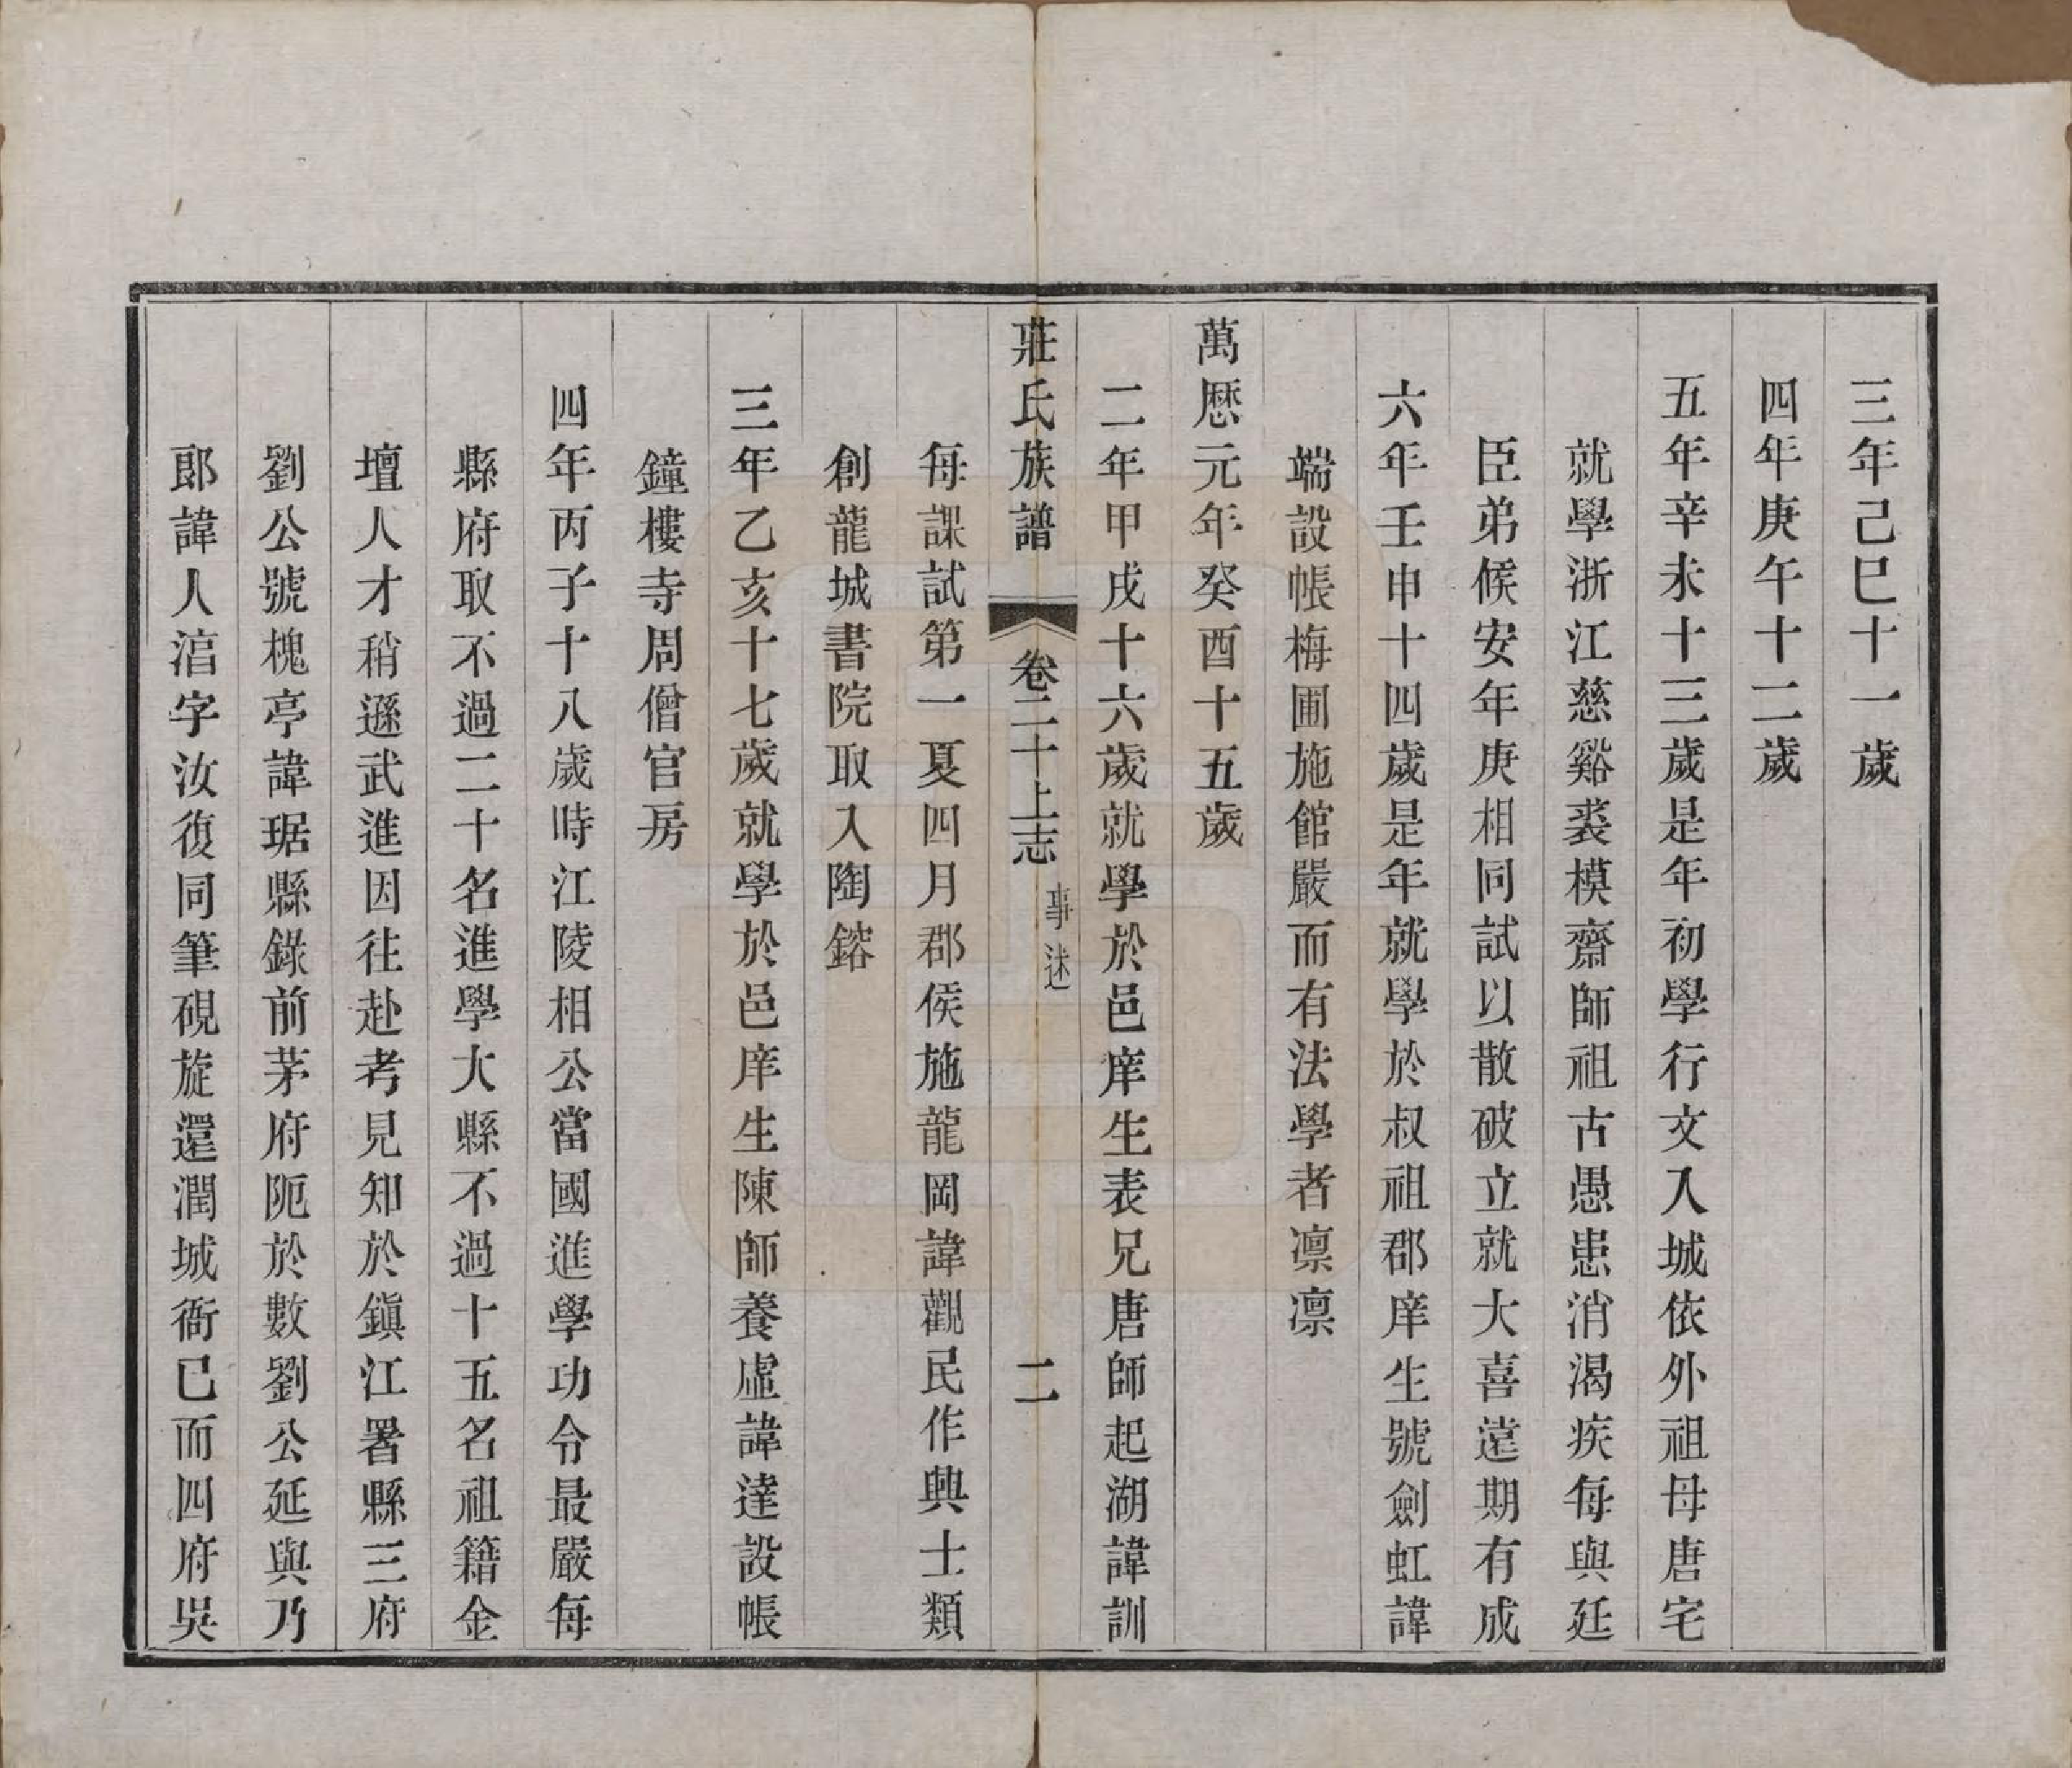 三年己巳十一歲
四年庚午十二歲
五年辛未十三歲是年初學行文入城依外祖母唐宅
就學浙江慈谿裘模齋師祖古愚患消渴疾每與廷
臣弟候安年庚相同試以散破立就大喜遠期有成
六年壬申十四歲是年就學於叔祖郡庠生號劍虹諱
端設帳梅圃施館嚴而有法學者凛凛
萬厯元年癸酉十五歲
二年甲戌十六歲就學於邑庠生表兄唐師起湖諱訓
莊氏族譜 卷二十上志 事述 二
每課試第一夏四月郡侯施龍岡諱觀民作興士類
創龍城書院取入陶鎔
三年乙亥十七歲就學於邑庠生陳師養虛諱達設帳
鐘樓寺周僧官房
四年丙子十八歲時江陵相公當國進學功令最嚴每
縣府取不過二十名進學大縣不過十五名祖籍金
壇人才稍遜武進因往赴考見知於鎭江署縣三府
劉公號槐亭諱琚縣錄前茅府阨於數劉公延與乃
郎諱人涫字汝復同筆硯旋還潤城衙已而四府吳